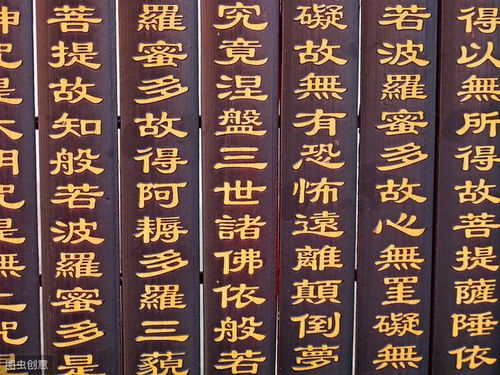 得以無所得故菩提薩陲依
若波羅蜜多故心無罣礙無
礙故無有恐怖遠離顛倒夢
究竟涅盤三世諸佛依般若
羅蜜多故得阿耨多羅三藐
菩提故知般若波羅蜜多是
神咒是大明咒是無上咒
图虫创意